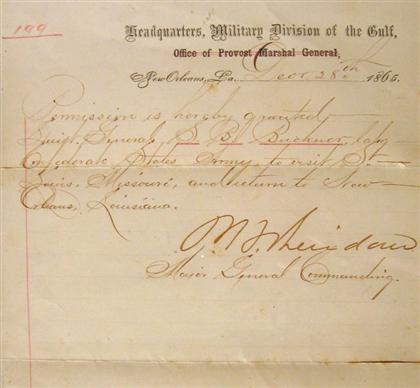 199
Headquarters, Military Division of the Gulf,
Office of Provost Marshal General,
New Orleans, La. Decr 28th 1865
Permission is hereby granted
Lieut. General, S B Buckner, late
Confederate States Army, to visit St.
Louis, Missouri, and return to New
Orleans, Louisiana.
P. H. Sheridan
Major General Commanding.